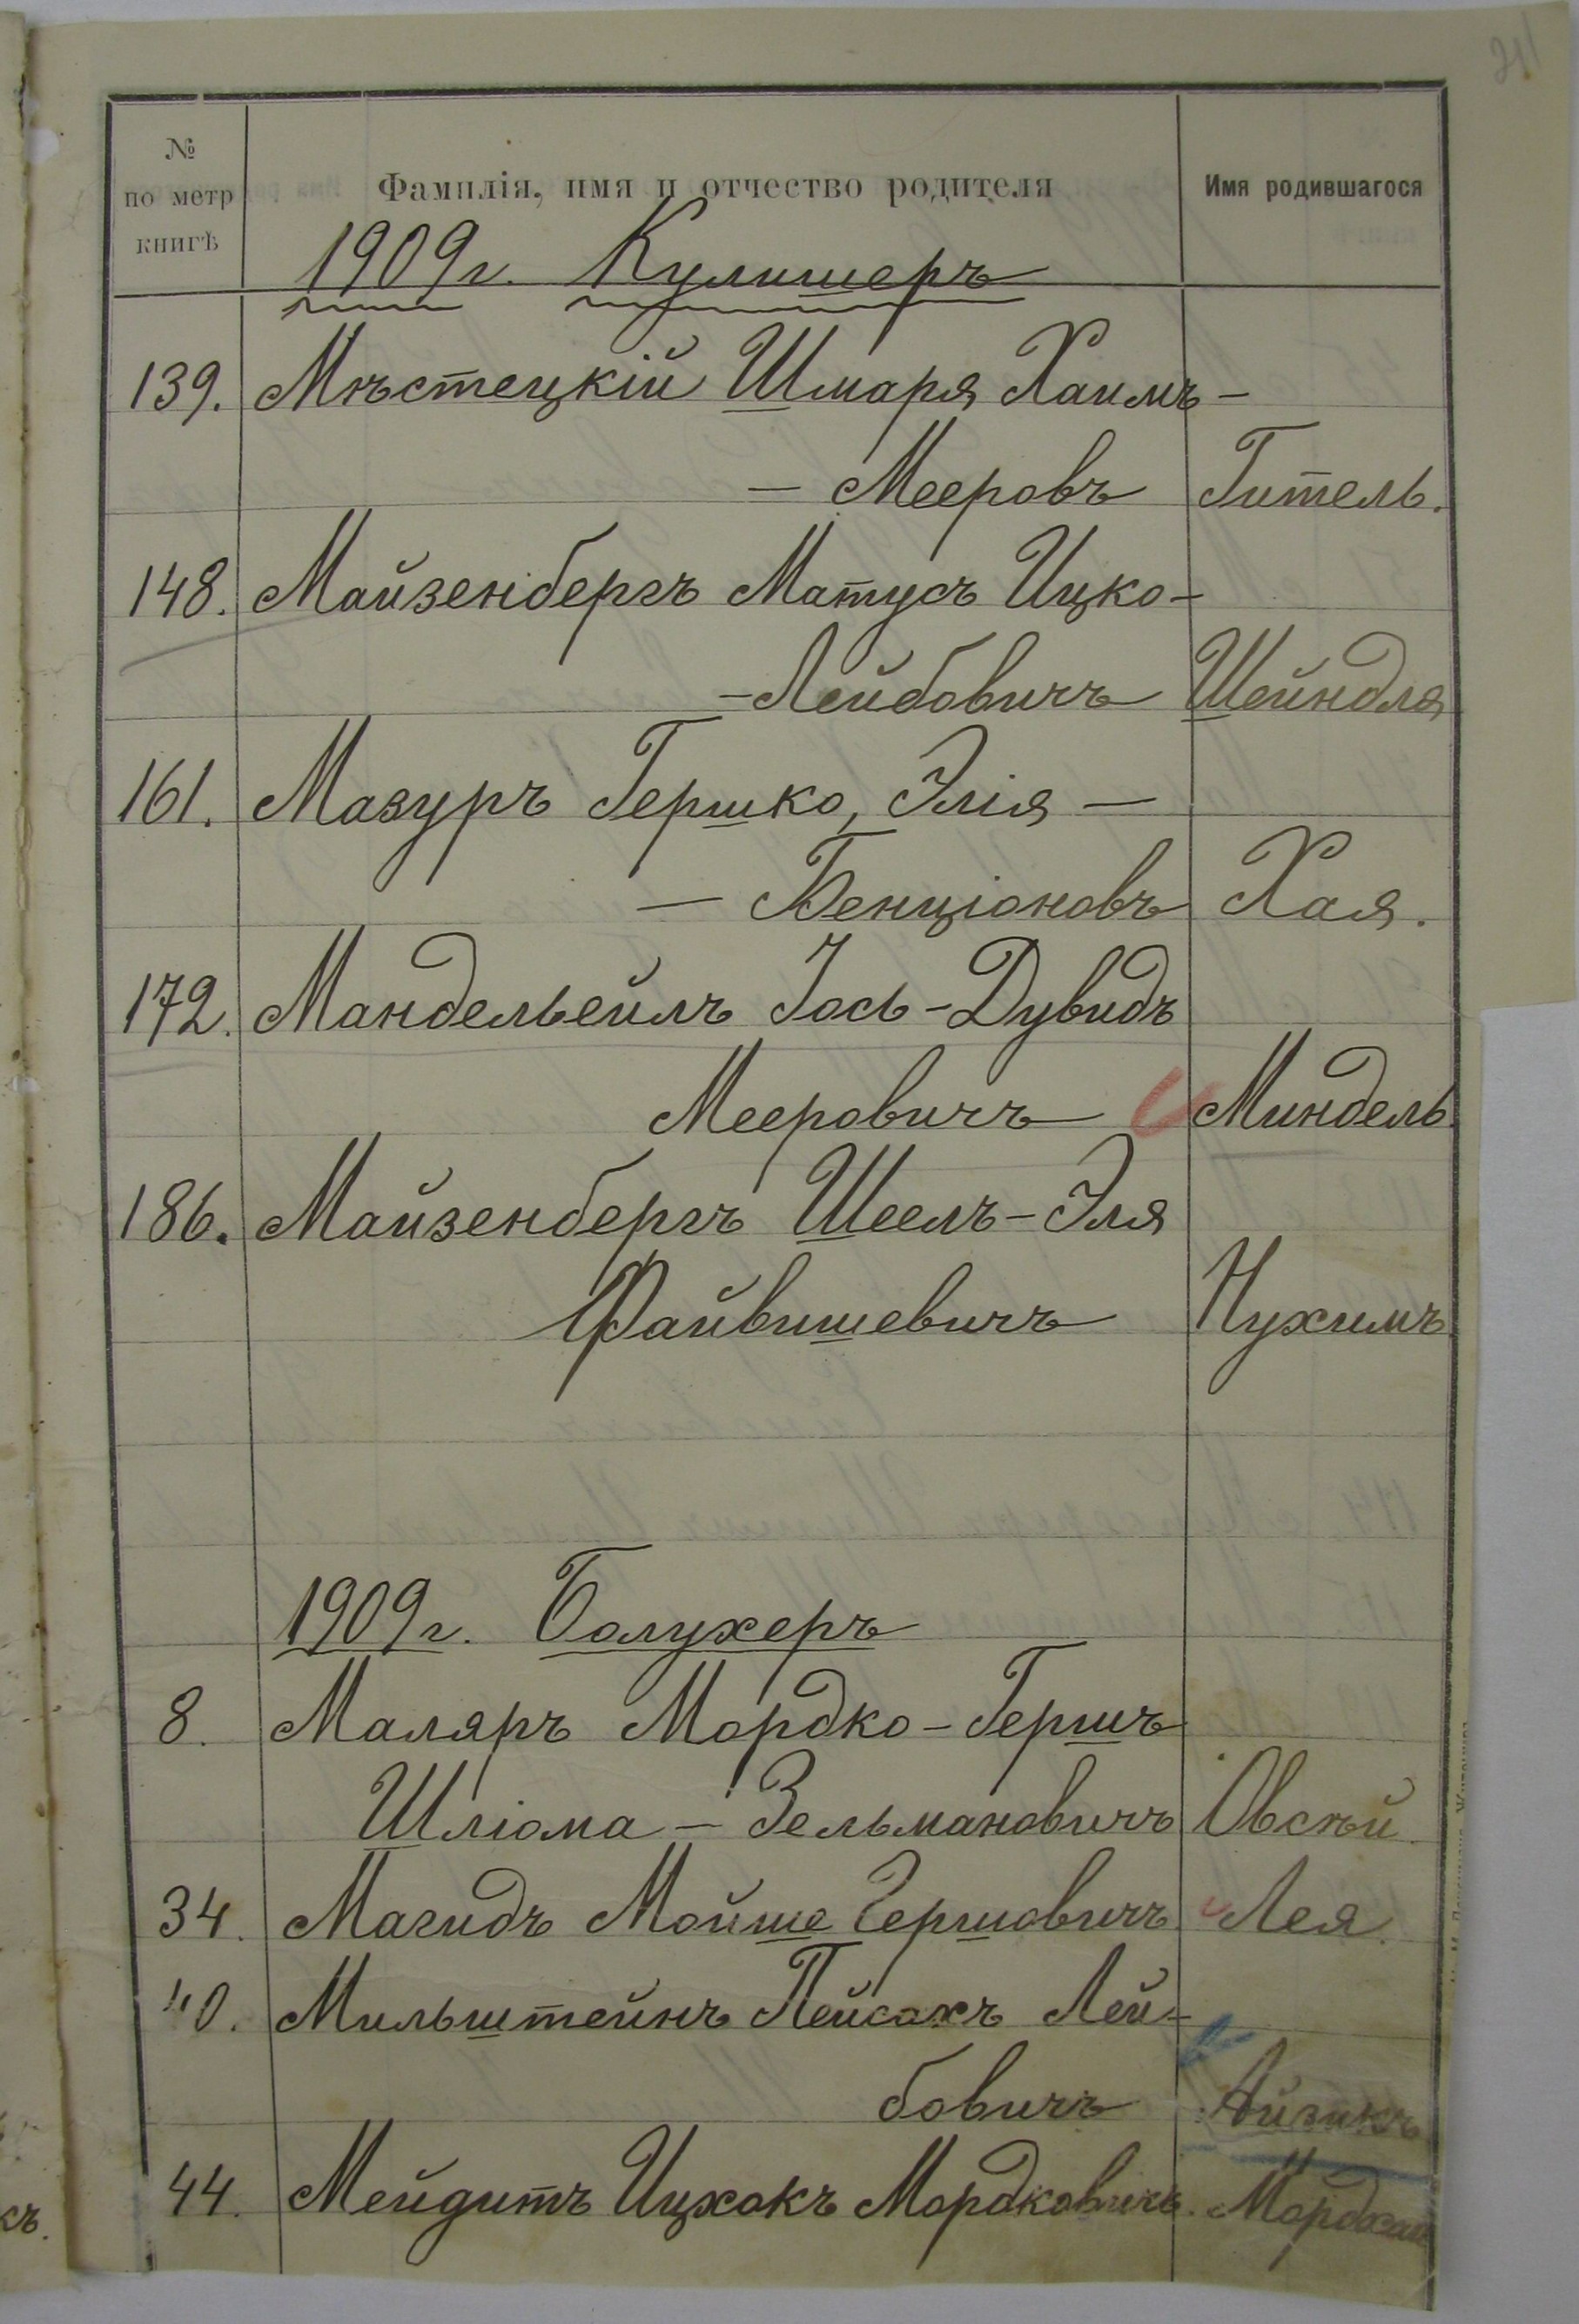 №
по метр
книгѣ
Фамилія, имя и отчество родителя
Имя родившагося
1909 г. Кулишеръ
139. Мѣстецкій Шмаря Хаимъ-
- Мееровъ Гитель.
148. Майзенбергъ Матусъ Ицко-
-Лейбовичъ Шейндля
161. Мазуръ Гершко, Элія -
- Бенціоновъ Хая.
172. Мандельейлъ Іось-Дувидъ
Мееровичъ Миндель
186. Майзенбергъ Шеелъ-Эля
Файвишевичъ Нухимъ
1909 г. Болухеръ
8. Маляръ Мордко-Гершъ
Шліома - Зельмановичъ Овсѣй
34. Магидъ Мойше Гершовичъ Лея.
40. Мильштейнъ Пейсахъ Лей-
бовичъ Айзикъ
44. Мейдитъ Ицхокъ Мордковичъ. Мордхай
къ.